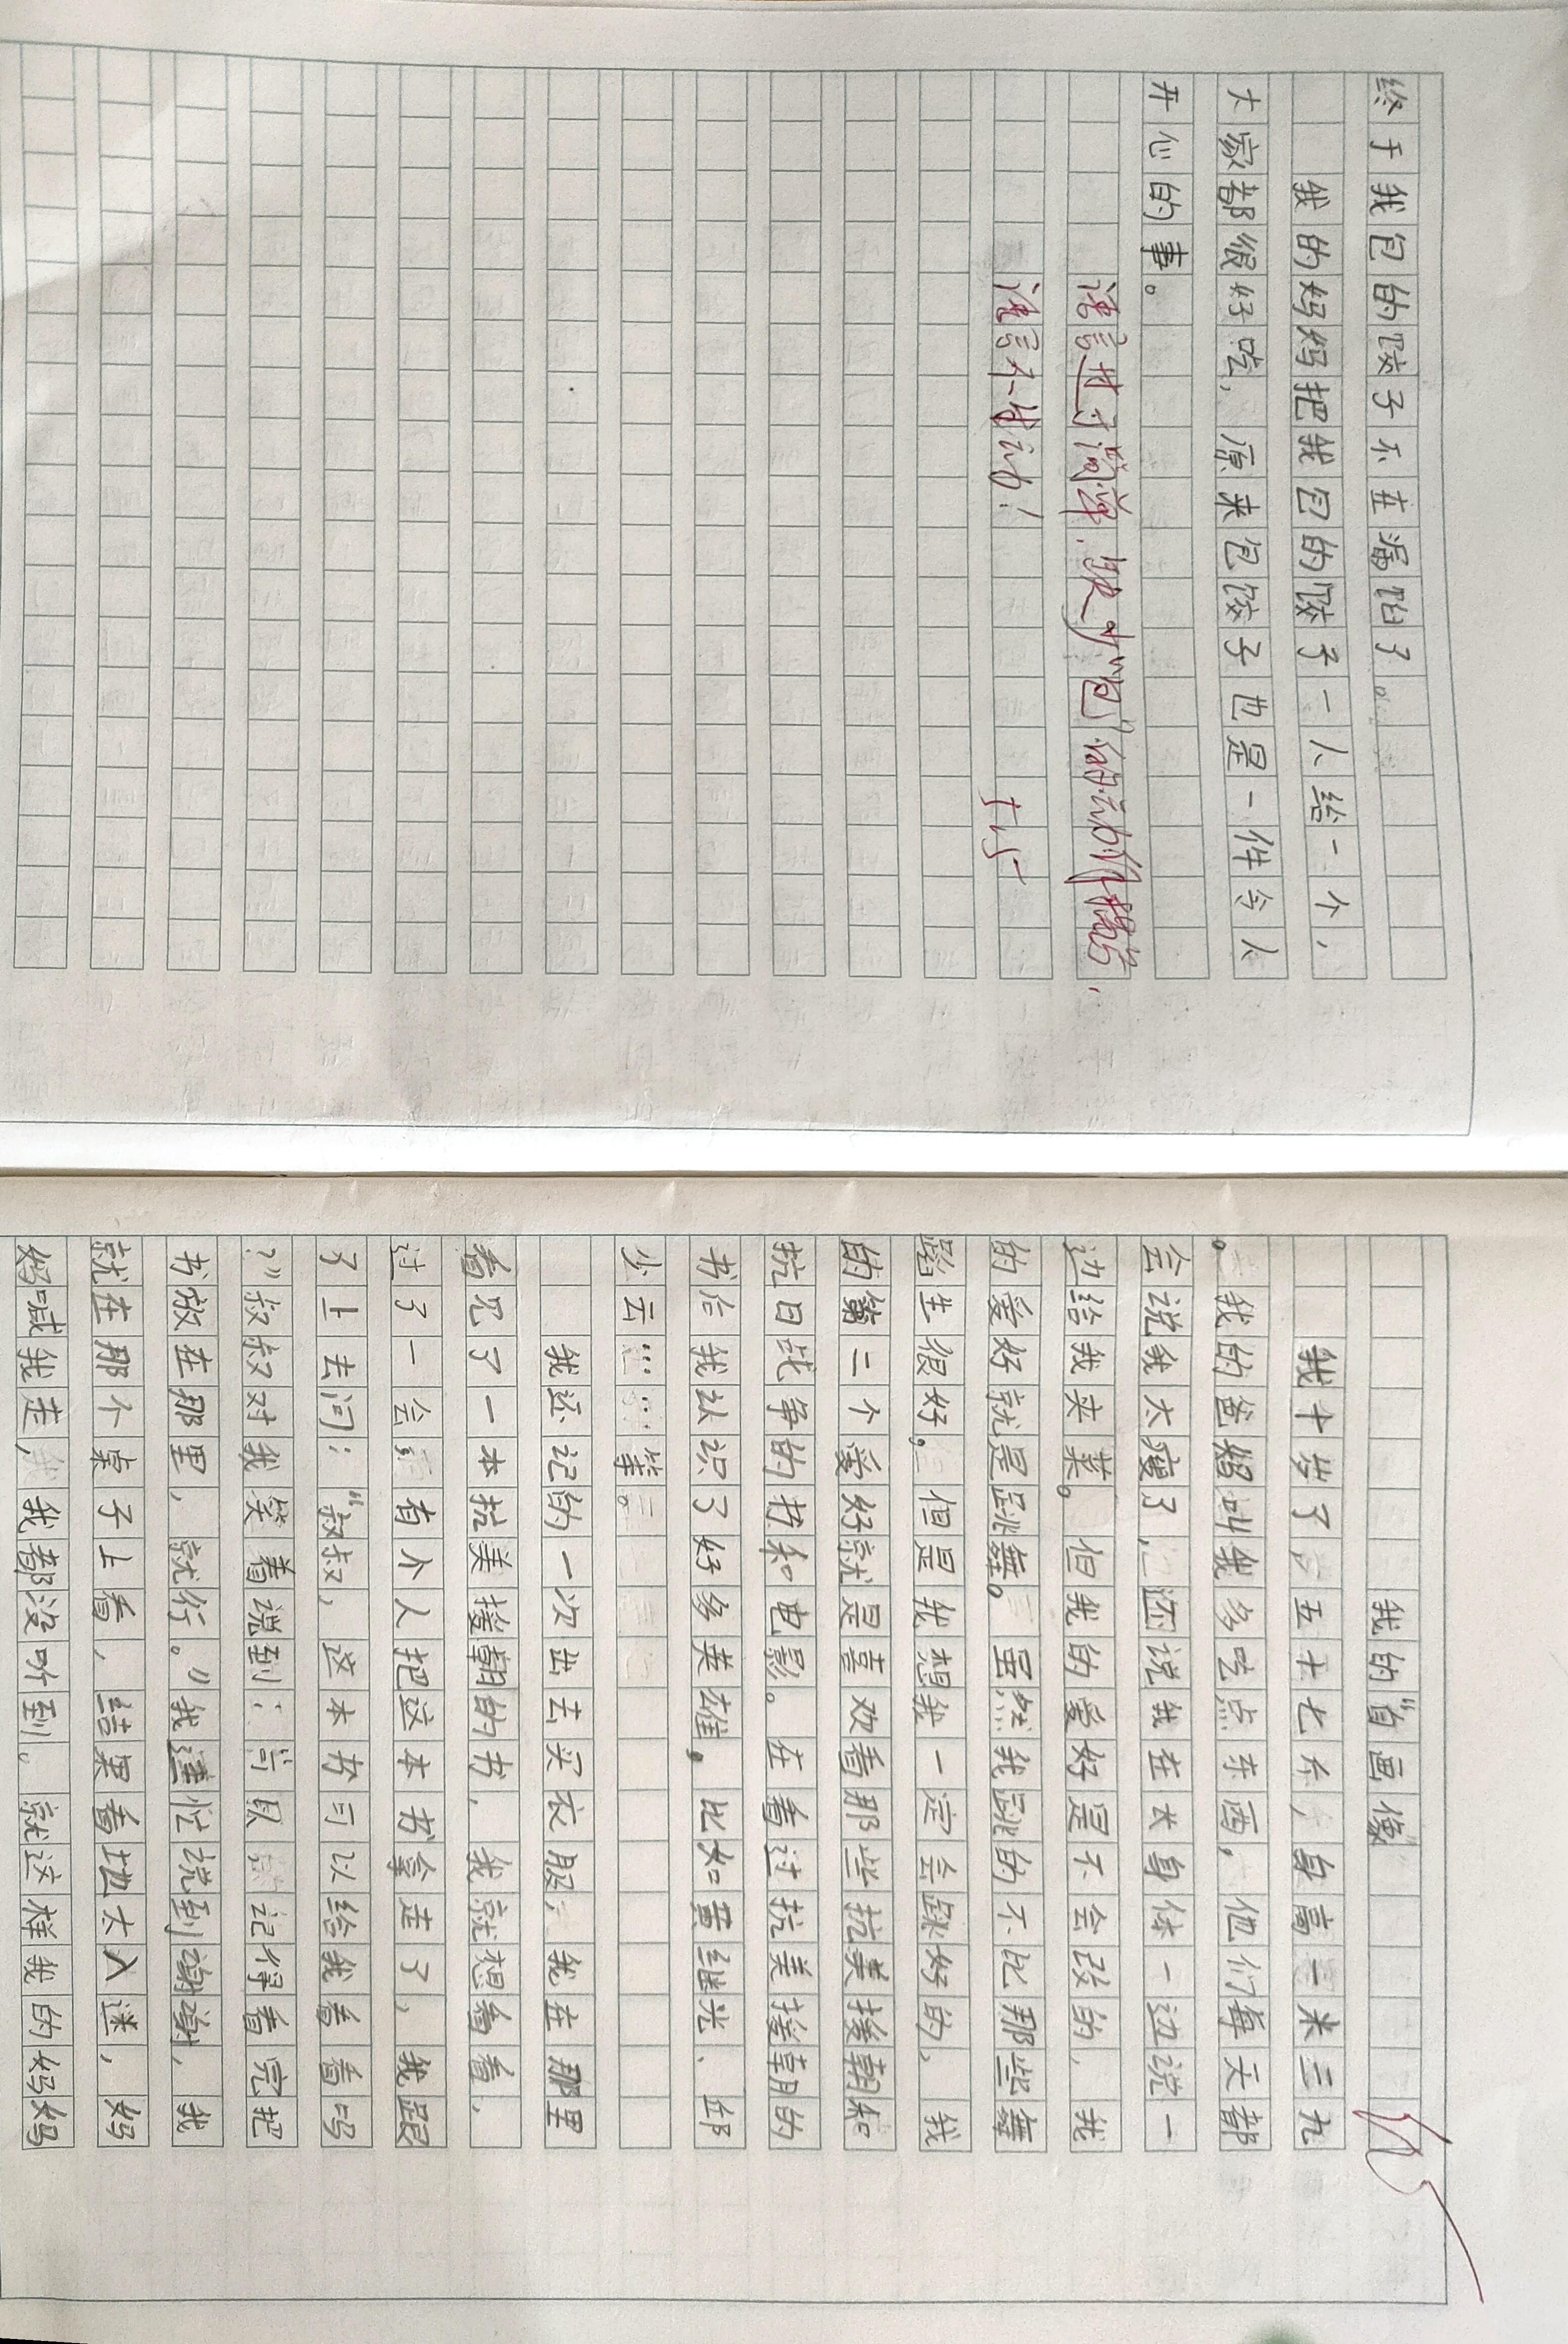 终于我包的饺子不在漏陷了。
我的妈妈把我包的饺子一人给一个，
大家都很好吃，原来包饺子也是一件令人
开心的事。
语言过于简单，缺少“包”的动作描写，
语言不生动！
我的“自画像”
我十岁了，五十七斤，身高一米三九
。我的爸妈叫我多吃点东西，他们每天都
会说我太瘦了，还说我在长身体一边说一
边给我夹菜。但我的爱好是不会改的，我
的爱好就是跳舞。虽然我跳的不比那些舞
蹈生很好，但是我想我一定会跳好的，我
的第二个爱好就是喜欢看那些抗美援朝和
抗日战争的书和电影。在看过抗美援朝的
书后我认识了好多英雄，比如黄继光、邱
少云……等。
我还记的一次出去买衣服，我在那里
看见了一本抗美援朝的书，我就想看看，
过了一会有个人把这本书拿走了，我跟
了上去问：“叔叔，这本书可以给我看看吗
？”叔叔对我笑着说到：可以记得看完把
书放在那里，就行。”我连忙说到谢谢，我
就在那个桌子上看，结果看地太入迷，妈
妈喊我走，我都没听到。就这样我的妈妈